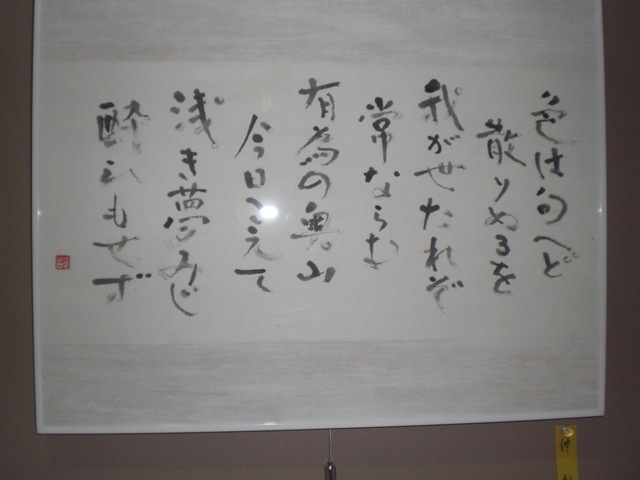 色は匂へど
散りぬるを
我がせたれぞ
常ならむ
有為の奥山
今日こえて
浅き夢みじ
酔ひもせず